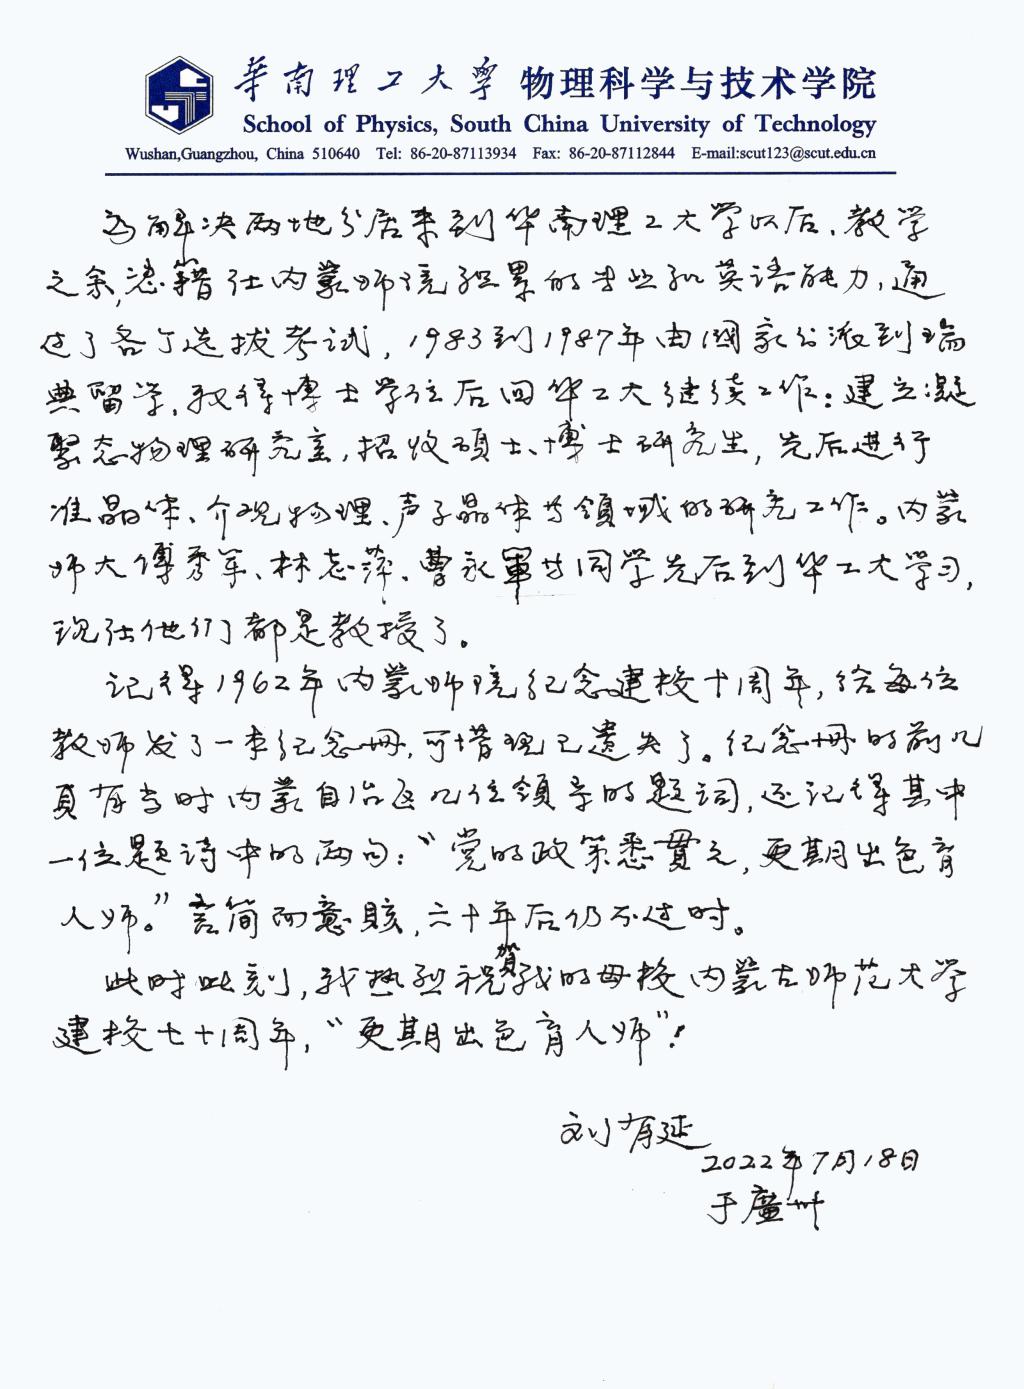 華南理工大學 物理科学与技术学院
School of Physics, South China University of Technology
Wushan,Guangzhou, China 510640 Tel: 86-20-87113934 Fax: 86-20-87112844 E-mail:scut123@scut.edu.cn
为解决两地分居来到华南理工大学以后，教学
之余，凭籍在内蒙师院积累的专业和英语能力，通
过了各个选拔考试，1983到1987年由國家公派到瑞
典留学，取得博士学位后回华工大继续工作：建立凝
聚态物理研究室，招收硕士、博士研究生，先后进行
准晶体、介观物理、声子晶体等領域的研究工作。内蒙
师大傅秀军、林志萍、曹永軍等同学先后到华工大学习，
现在他们都是教授了。
记得1962年内蒙师院纪念建校十周年，给每位
教师发了一本纪念册，可惜现已遗失了。纪念册的前几
頁有当时内蒙自治区几位領导的题词，还记得其中
一位题诗中的两句：“党的政策悉貫之，更期出色育
人师。”言简而意賅，六十年后仍不过时。
此时此刻，我热烈祝賀我的母校内蒙古师范大学
建校七十周年，“更期出色育人师”！
刘有延
2022年7月18日
于廣州